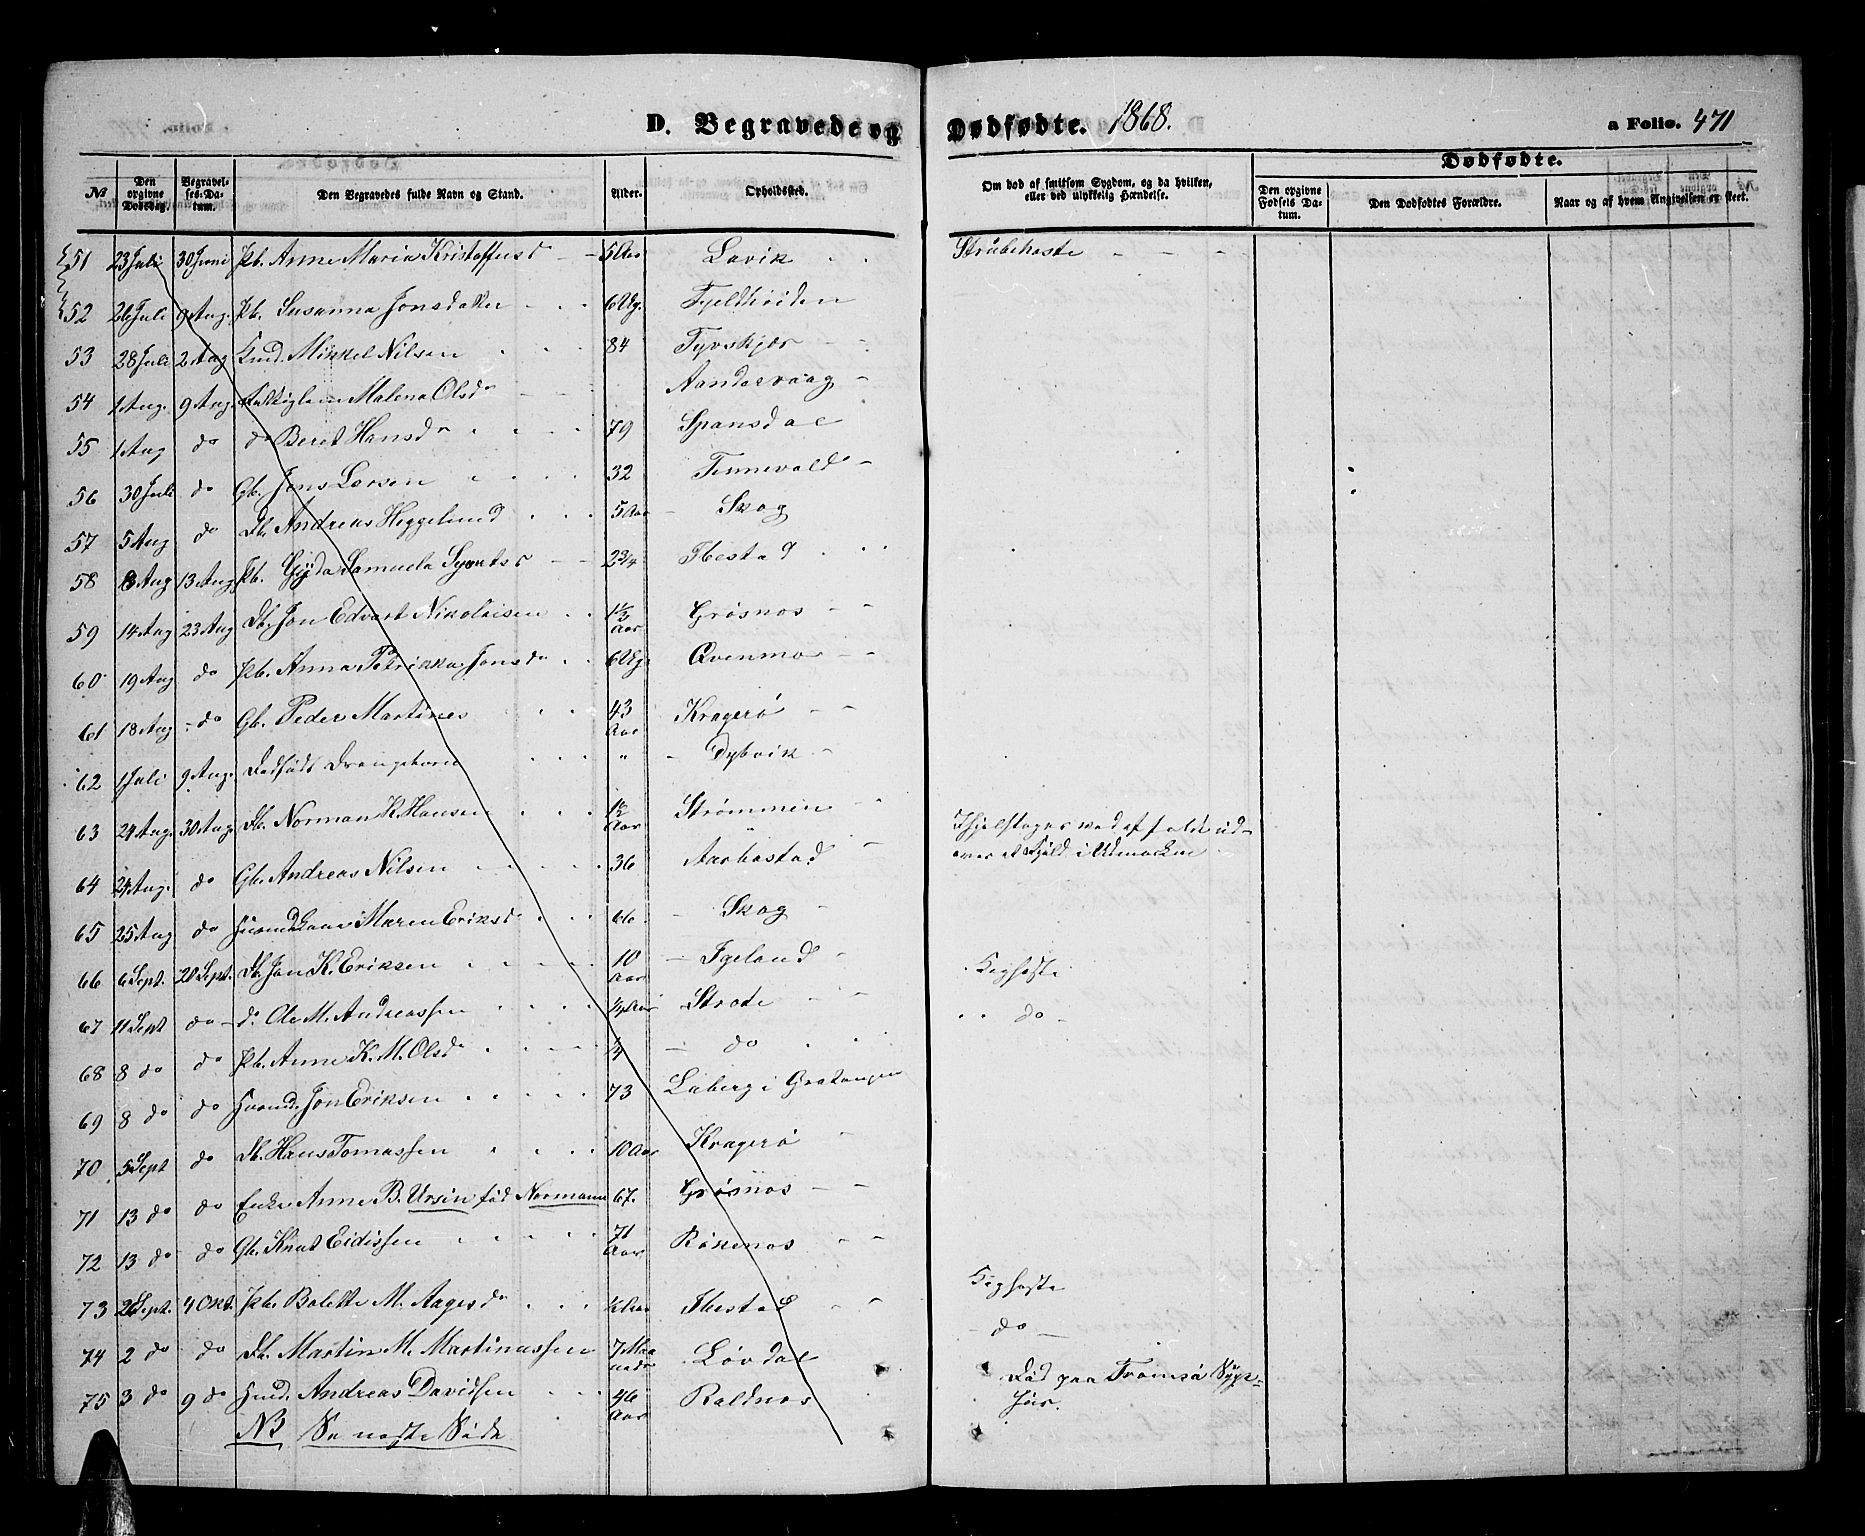 D. Begravede og Dødfødte. 1868.
a Folio. 471
Dødfødte.
№ Den opgivne Dødsdag. Begravelses-Datum. Den Begravedes fulde Navn og Stand. Alder. Opholdssted. Om død af smitsom Sygdom, og da hvilken, eller ved ulykkelig Hændelse. Den opgivne Fødsels Datum. Den Dødfødtes Forældre. Naar og af hvem Angivelsen er skeet.
51 23 Juli 30 Juni Pb. Anne Maria Kristoffersd 5 Aar Lavik Strubehoste
52 26 Juli 9 Aug. Pb. Susanna Jonsdatter 6 Ug. Fjeldhøiden
53 28 Juli 2 Aug Mikkel Nilsen 84 Tyvskjær
54 1 Aug. 9 Aug. Malena Olsdr Aandervaag
55 1 Aug do do Beret Hansdr 79 Spansdal
56 30 Juli do Gb. Jens Larsen 32 Tennevold
57 5 Aug do Db. Andreas Heggelund 5 Aar Skog
58 8 Aug 13 Aug Pb. Gyda Samuela 2 3/4 Ibestad
59 14 Aug 23 Aug Db. Jon Edvart Nikolaisen 1 1/2 Aar Grøsnos
60 19 Aug do Pb. Anna Petrikka Jonsdr 6 Ug. Qvenmo
61 18 Aug do Gb. Peder Martines 43 Aar Kragerø
62 1 Juli 9 Aug. Dødfødt Drengebarn " Dybvik
63 24 Aug. 30 Aug. Db. Norman K. Hansen 1 1/2 Aar Strømmen
64 24 Aug. do Gb. Andreas Nilsen 36 Aarbostad Ihjelslagen ved at falde ud-
over et Fjeld i Udmarken
65 25 Aug do Maren Eriksd 66 Skog
66 6 Sept. 20 Sept. Db. Jon K. Eriksen 10 Aar Igeland Kighoste
67 11 Sept do do Ole M. Andreassen Aar Strote do
68 8 do do Pb. Anne K. M. Olsdr do
69 8 do do Jon Eriksen 73 Laberg i Gratangen
70 5 Sept do Db. Hans Tomassen 10 Aar Kragerø
71 13 do do Enke Anne B. Ursin fød Normann 67. Grøsnos
72 13 do do Gb. Knut Eidissen 71 Aar Røkenos
73 Sept. 4 Okt. Pb. Bolette M. Aagesdr Aar Ibestad Kighoste
74 2 do do Db. Martin M. Martinussen 7 Maaneder Løvdal do
75 3 do 9 do Andreas Davidsen 46 Aar Roldnos Død paa Tromsø Syge-
hus.
NB Se næste Side